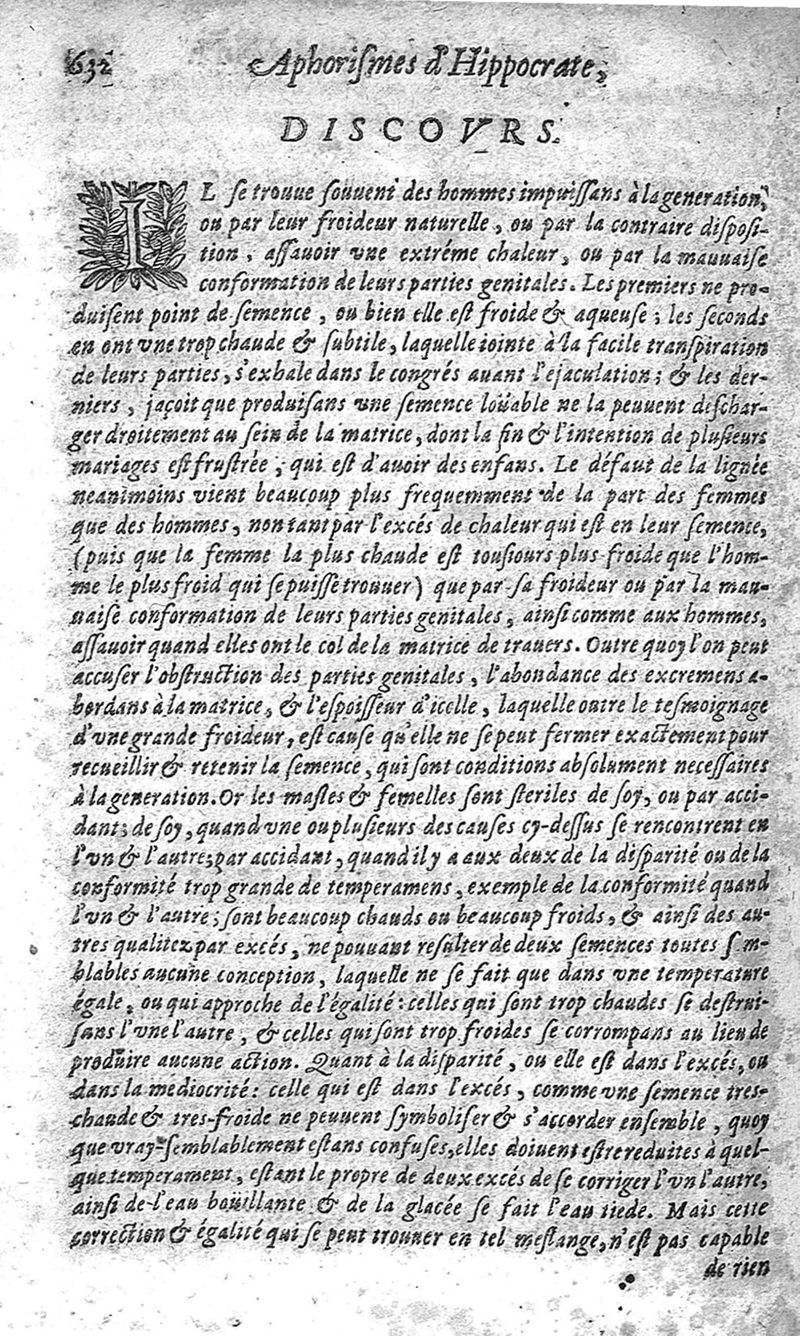 632 Aphorismes d'Hippocrate,
DISCOVRS.
IL se trouue souuent des hommes impuissans à la generation,
ou par leur froideur naturelle, ou par la contraire disposi-
tion, assauoir vne extréme chaleur, ou par la mauuaise
conformation de leurs parties genitales. Les premiers ne pro-
duisent point de semence, ou bien elle est froide & aqueuse; les seconds
en ont vne trop chaude & subtile, laquelle iointe à la facile transpiration
de leurs parties, s'exhale dans le congrés auant l'ejaculation; & les der-
niers, jaçoit que produisans vne semence loüable ne la peuuent deschar-
ger droitement au sein de la matrice, dont la fin & l'intention de plusieurs
mariages est frustrée, qui est d'auoir des enfans. Le défaut de la lignée
neanimoins vient beaucoup plus frequemment de la part des femmes
que des hommes, non tant par l'excés de chaleur qui est en leur semence,
(puis que la femme la plus chaude est tousiours plus froide que l'hom-
me le plus froid qui se puisse trouuer) que par sa froideur ou par la mau-
uaise conformation de leurs parties genitales, ainsi comme aux hommes,
assauoir quand elles ont le col de la matrice de trauers. Outre quoy l'on peut
accuser l'obstruction des parties genitales, l'abondance des excremens a-
bordans à la matrice, & l'espoisseur d'icelle, laquelle outre le tesmoignage
d'vne grande froideur, est cause qu'elle ne se peut fermer exactement pour
recueillir & retenir la semence, qui sont conditions absolument necessaires
à la generation. Or les masles & femelles sont steriles de soy, ou par acci-
dant; de soy, quand vne ou plusieurs des causes cy-dessus se rencontrent en
l'vn & l'autre; par accidant, quand il y a aux deux de la disparité ou de la
conformité trop grande de temperamens, exemple de la conformité quand
l'vn & l'autre; sont beaucoup chauds ou beaucoup froids, & ainsi des au-
tres qualitez par excés, ne pouuant resulter de deux semences toutes s m-
blables aucune conception, laquelle ne se fait que dans vne temperature
égale, ou qui approche de l'égalité: celles qui sont trop chaudes se destrui-
sans l'vne l'autre, & celles qui sont trop froides se corrompans au lieu de
produire aucune action. Quant à la disparité, ou elle est dans l'excés, ou
dans la mediocrité: celle qui est dans l'excés, comme vne semence tres-
chaude & tres-froide ne peuuent symboliser & s'accorder ensemble, quoy
que vray-semblablement estans confuses, elles doiuent estre reduites à quel-
que temperament, estant le propre de deux excés de se corriger l'vn l'autre,
ainsi de l'eau bouillante & de la glacée se fait l'eau tiede. Mais cette
correction & égalité qui se peut trouuer en tel meslange, n'est pas capable
de rien